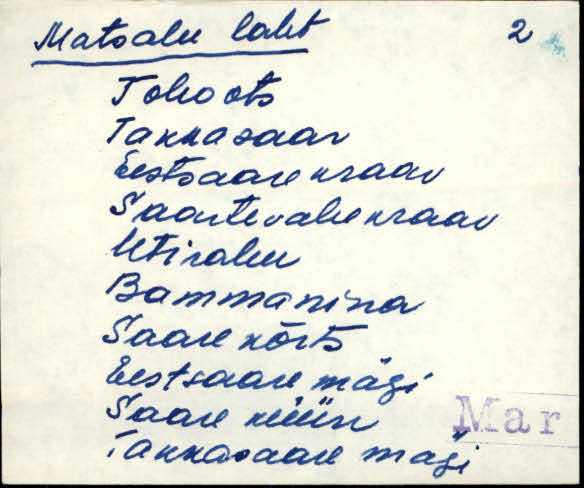 Matsalu laht 2
Tohoots
Takkasaar
Eestsaare kraav
Saartevahe kraav
Utirahu
Bammanina
Saare kõrts
Eestsaare mägi
Saare küün
Mar
Takkasaare mägi